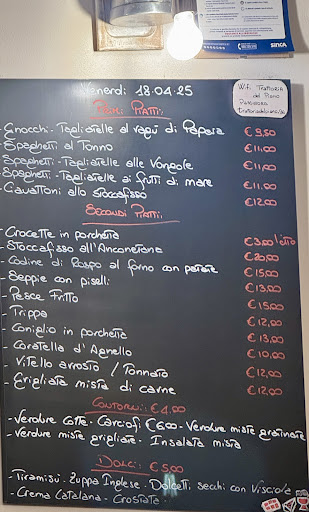 Venerdi 18.04.25
W.f. Trattoria
del Piano
Password
PRIMI PIATTI:
- Gnocchi - Tagliatelle al ragù di Papera €9,50
- Spaghetti al Tonno €11,00
- Spaghetti - Tagliatelle alle Vongole €11,00
- Spaghetti - Tagliatelle ai frutti di mare €11,00
- Ciavattoni allo stoccafisso €12,00
SECONDI PIATTI:
- Crocette in porchetta €3,00 l'etto
- Stoccafisso all'Anconetana €20,00
- Codine di Rospo al forno con patate €15,00
- Seppie con piselli €13,00
- Pesce Fritto €15,00
- Trippa €12,00
- Coniglio in porchetta €13,00
- Coratella d'Agnello €10,00
- Vitello arrosto / Tonnato €12,00
- Grigliata mista di carne €12,00
CONTORNI: €4,00
- Verdure Cotte - Carciofi €6,00 - Verdure miste gratinate
- Verdure miste grigliate - Insalata mista
DOLCI: €5,00
- Tiramisù - Zuppa Inglese - Dolcetti secchi con Visciola
- Crema Catalana - Crostata
SINCA